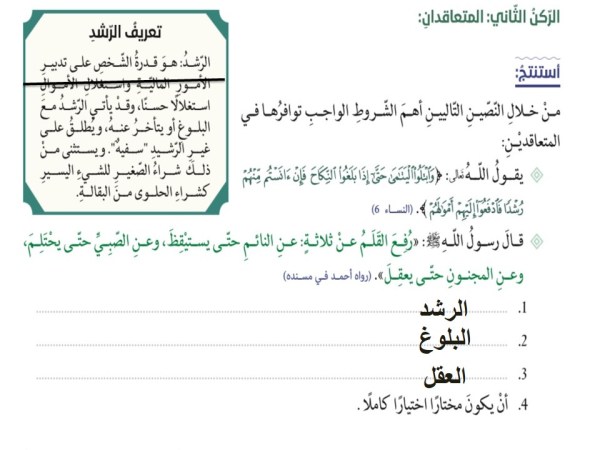 الرّكنُ الثّاني: المتعاقدانِ:
تعريفُ الرّشدِ
الرّشدُ: هوَ قدرةُ الشّخصِ على تدبيرِ
الأمورِ الماليّةِ واستغلالِ الأموالِ
استغلالًا حسنًا، وقدْ يأتي الرّشدُ معَ
البلوغِ أو يتأخّرُ عنهُ، ويُطلقُ على
غيرِ الرّشيدِ "سفيهٌ". ويستثنى منْ
ذلكَ شراءُ الصّغيرِ للشّيءِ اليسيرِ
كشراءِ الحلوى منَ البقالةِ.
أستنتجُ:
منْ خلالِ النّصّينِ التّاليينِ أهمَّ الشّروطِ الواجبِ توافرُها في
المتعاقديْنِ:
يقولُ اللّهُ تعالى: ﴿وَٱبْتَلُوا۟ ٱلْيَتَٰمَىٰ حَتَّىٰٓ إِذَا بَلَغُوا۟ ٱلنِّكَاحَ فَإِنْ ءَانَسْتُم مِّنْهُمْ
رُشْدًا فَٱدْفَعُوٓا۟ إِلَيْهِمْ أَمْوَٰلَهُمْ﴾. (النساء 6)
قالَ رسولُ اللّهِ ﷺ: «رُفِعَ القَلَمُ عنْ ثلاثةٍ: عنِ النائمِ حتّى يستيْقِظَ، وعنِ الصّبيِّ حتّى يحْتَلِمَ،
وعنِ المجنونِ حتّى يعقِلَ». (رواه أحمد في مسنده)
1. الرشد
2. البلوغ
3. العقل
4. أنْ يكونَ مختارًا اختيارًا كاملًا.